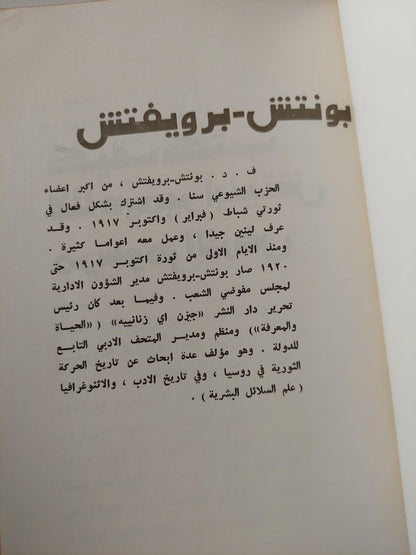 بونتش-برويفتش
ف . د . بونتش-برويفتش ، من اكبر اعضاء
الحزب الشيوعي سنا . وقد اشترك بشكل فعال في
ثورتي شباط (فبراير) واكتوبر ١٩١٧ . وقد
عرف لينين جيدا ، وعمل معه اعواما كثيرة .
ومنذ الايام الاولى من ثورة اكتوبر ١٩١٧ حتى
١٩٢٠ صار بونتش-برويفتش مدير الشؤون الادارية
لمجلس مفوضي الشعب . وفيما بعد كان رئيس
تحرير دار النشر «جيزن اي زنانييه» («الحياة
والمعرفة») ومنظم ومدير المتحف الادبي التابع
للدولة . وهو مؤلف عدة ابحاث عن تاريخ الحركة
الثورية في روسيا ، وفي تاريخ الادب ، والاثنوغرافيا
(علم السلائل البشرية) .